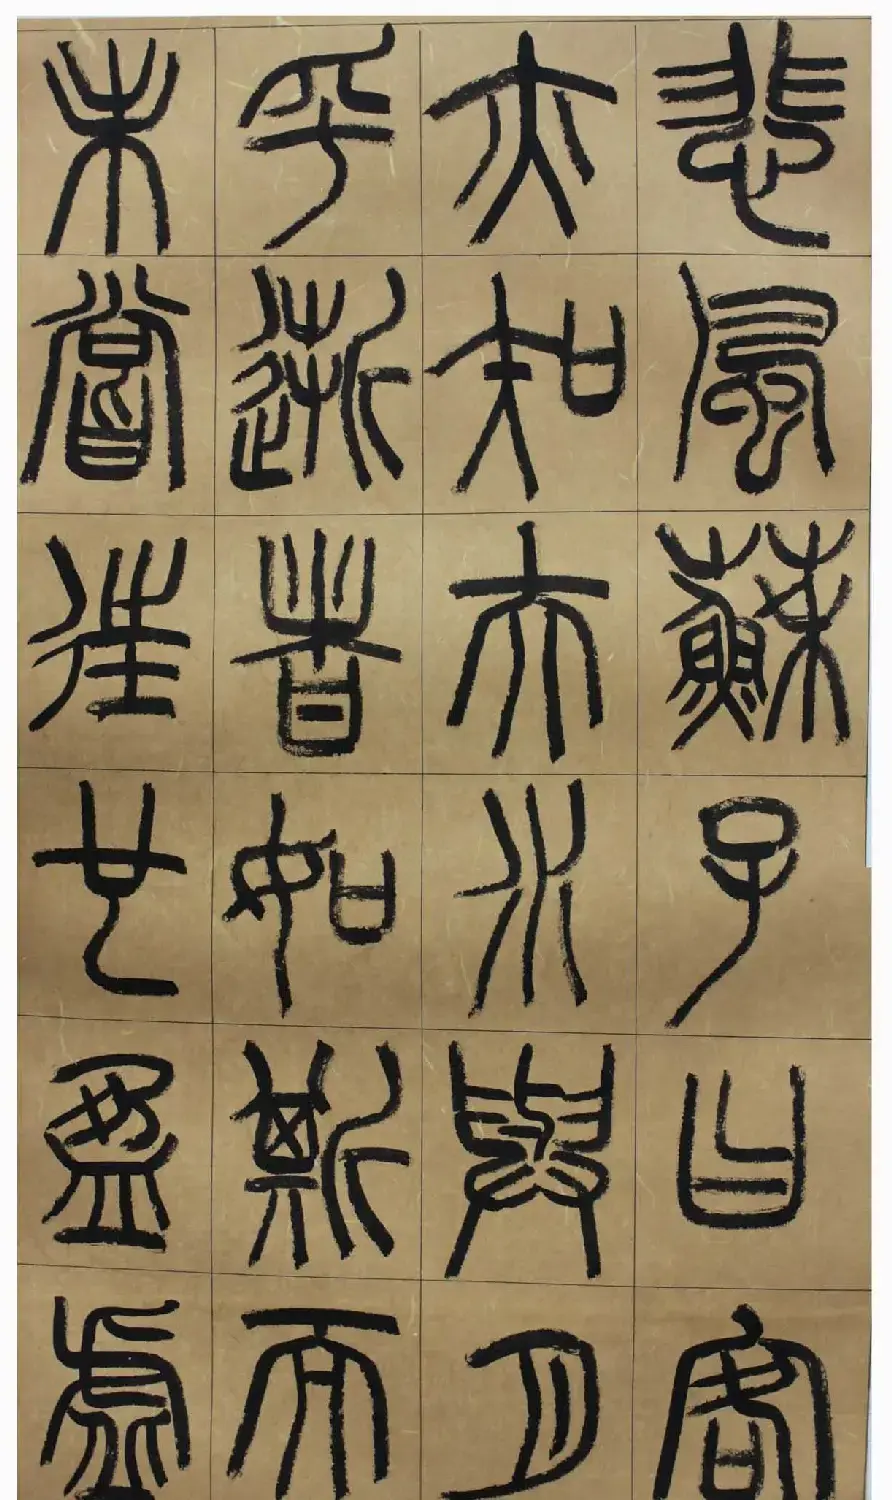 悲風蘇子曰客
亦知夫水與月
乎逝者如斯而
未嘗往也盈虛